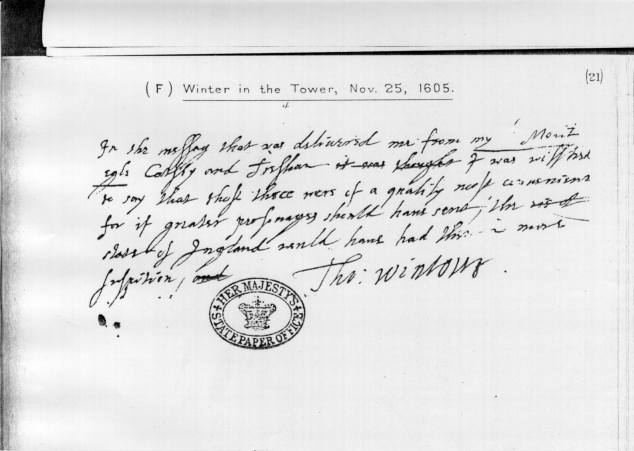 (F) Winter in the Tower, Nov. 25, 1605.
(21)
In the messag that was deliuered me from my Mont
egle Catsby and Tressam it was thought I was willed
to say that thos three were of a quality most convenient
for if greater personages should haue sent, the
state of Ingland would haue had the more
suspition, and
Tho: Wintour.
HER MAJESTY'S
STATE PAPER OFFICE